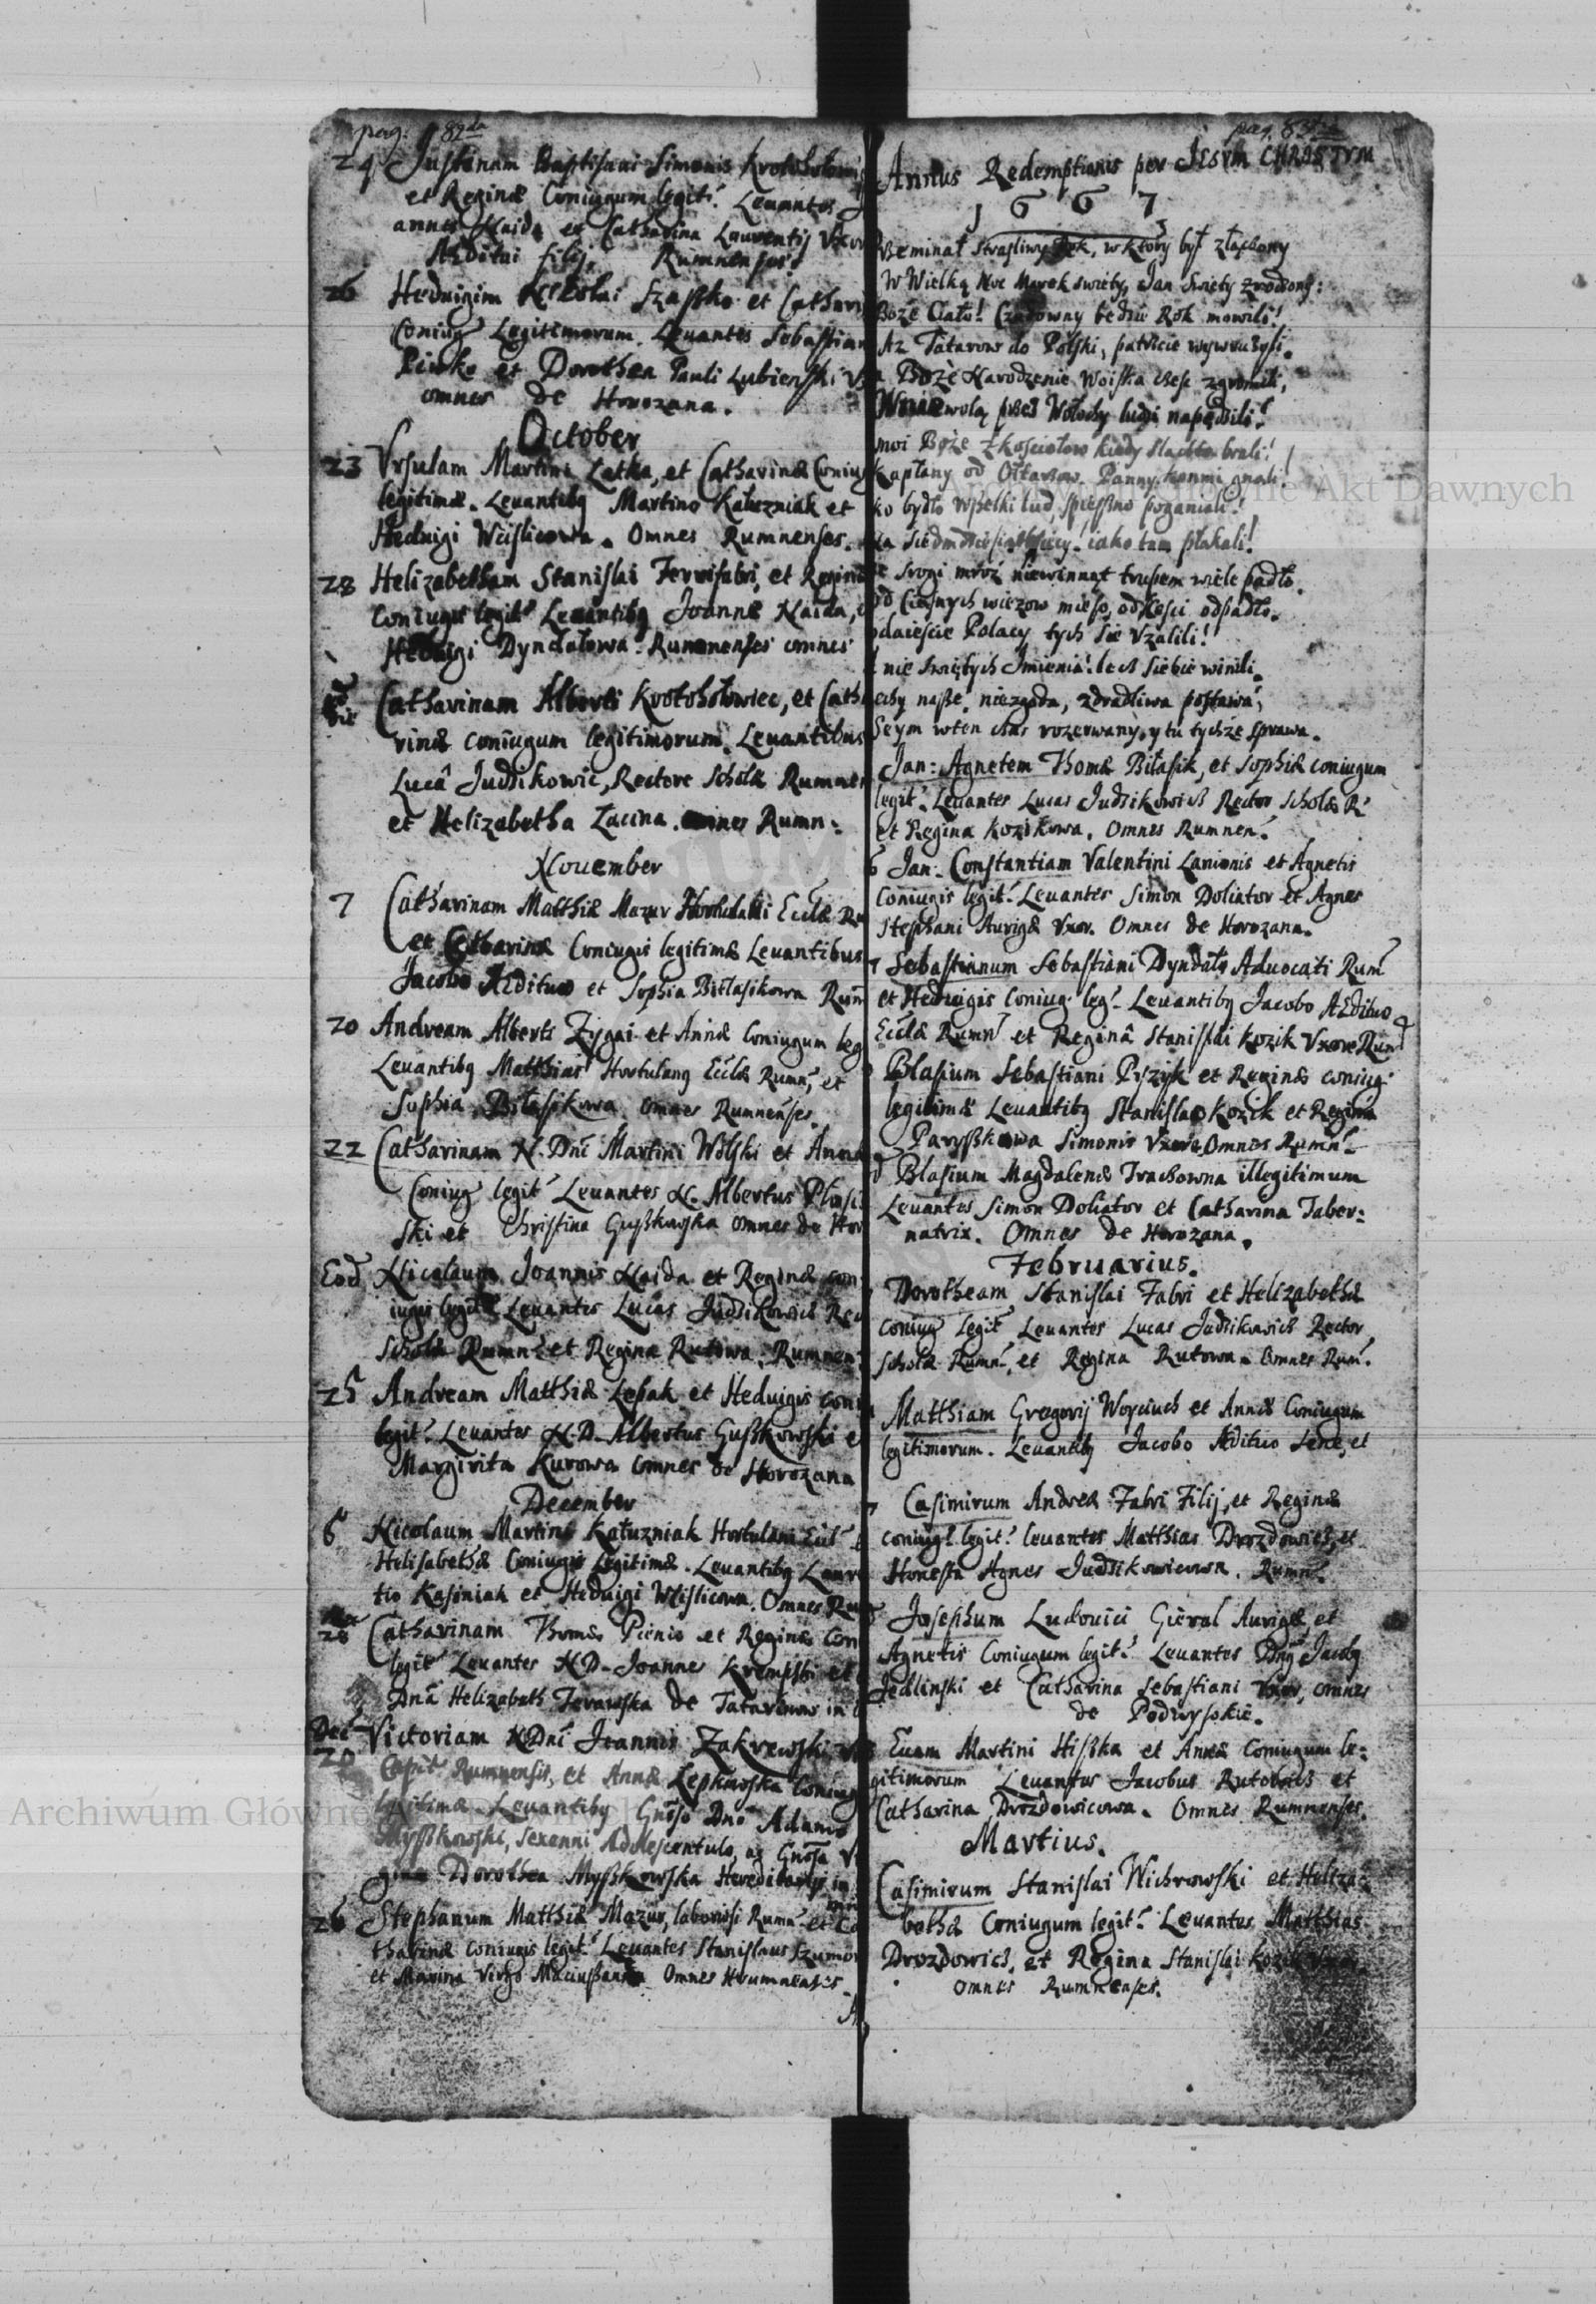 pag. 82da
24 Justinam Baptisaui Simonis Krotoholowi
et Reginæ Coniugum legit. Leuantes J
annes Naida et Catharina Laurentij Vxor
Æditui filij, Rumnenses.
26 Heduigim Nikolai Szaßko et Cathari
Coniug Legitimorum. Leuantes Sebastian
Piwko et Dorothea Pauli Lubienski V
omnes de Horozana.
October
23 Vrsulam Martini Letka, et Catharinæ Coniug
legitimæ. Leuantibq Martino Kałuzniak et
Heduigi Wislicowa. Omnes Rumnenses.
28 Helizabetham Stanislai Ferrifabri, et Regin
Coniugis legit Leuantibq Joanne Naida, e
Heduigi Dyndałowa. Rumnenses omnes
Catharinam Alberti Krotohołowiec, et Catha
rinæ coniugum legitimorum. Leuantibus
Lucâ Judzikowic, Rectore Scholæ Rumnen
et Helizabetha Zacina. omnes Rumn:
Nouember
7 Catharinam Matthiæ Mazur Hortulani Eccl&æ Ru
et Catharinæ Coniugis legitimæ Leuantibus
Jacobo Ædituo et Sophia Bitłasikowa Rum
20 Andream Alberti Zygai et Annæ Coniugum leg
Leuantibq Matthias Hortulanq Eccl&æ Rumn, et
Sophia Biłasikowa. omnes Rumnenses.
22 Catharinam N. Dni Martini Wolski et Annæ
Coniug legit Leuantes N. Albertus Płosc
ski et Christina Gußkowska omnes de Hor
Eod Nicolaum Joannis Naida et Reginæ con
iugis legit Leuantes Lucas Judzikowicz Rec
Scholæ Rumn. et Regina Rutowa. Rumnen
25 Andream Matthiæ Lesak et Heduigis coni
legit. Leuantes N.D. Albertus Gußkowski e
Margirita Kurowa omnes de Horozana
December
6 Nicolaum Martini Kałuzniak Hortulani Eccl
Helisabethæ Coniugis Legitimæ. Leuantibq Laur
tio Kasiniak et Heduigi Wislicowa. Omnes Ru
28 Catharinam Thomæ Pienio et Reginæ Con
legit Leuantes N.D. Joannes Krempski et
Dna Helizabeth Terawska de Tatarinow in
Dec Victoriam N. Dni Joannis Zakrzewski
Capit Rumnensis, et Annæ Lepkowska Coniug
legitimæ. Leuantibq Gnoso Dno Adamo
Myßkowski, sexanni Adolescentulo, ac Gnosa Vi
gine Dorothea Myßkowska Hereditariis in
26 Stephanum Matthiæ Mazur, laboriosi Rumn. et Ca
tharinæ coniugis legit. Leuantes Stanislaus Szumo
et Marina Virgo Maciußanka Omnes Rumnenses.
pag. 83
Annus Redemptionis per JESVM CHRISTVM
1667
Przeminał Strasliwy Rok, w ktory był złączony
W Wielką Noc Marek swiety, Jan Swiety zrodzony:
Boże Ciało! Cudowny bedzie Rok mowili!
Az Tatarow do Polski, patrzcie wywrużyli.
Boże Narodzenie Woiska gromili,
W niewolą przes Wołochy ludzi napędzili!
moi Boże z kosciołow kiedy Slachte brali!
Kapłany od Ołtarzow. Panny konmi gnali!
ko bydło wszelki lud, spießno poganiali!
Siedmdziesiąt tysiecy! iako tam płakali!
srogi mroz niewinnat trupem wiele padło.
od Ciasnych wiezow mieso, od kosci odpadło.
daiescie Polacy tych sie vzalili!
nie swiętych Imienia! lecz siebie winili.
echy naße, niezgoda, zdradliwa postawa,
Seym wten czas rozerwany, y tu tychże sprawa.
Jan: Agnetem Thomæ Biłasik, et Sophiæ coniugum
legit. Leuantes Lucas Judzikowicz Rector Scholæ R
et Regina Kozikowa. Omnes Rumnen.
6 Jan. Constantiam Valentini Lanionis et Agnetis
Coniugis legit. Leuantes Simon Doliator et Agnes
Stephani Aurigæ Vxor. Omnes de Horozana.
Sebastianum Sebastiani Dyndało Aduocati Rum
et Heduigis Coniug. leg. Leuantibq Jacobo Ædituo
Eccl&æ Rumn et Reginâ Stanislai Kozik Vxore Rum
Blasium Sebastiani Pyzyk et Reginæ coniug.
legitimæ Leuantibq Stanislao Kozik et Regina
Paryßkowa Simonis Vxore Omnes Rumn.
Blasium Magdalenæ Trachowna illegitimum
Leuantes Simon Doliator et Catharina Taber-
natrix. Omnes de Horozana.
Februarius.
Dorotheam Stanislai Fabri et Helizabethæ
Coniug legit Leuantes Lucas Judzikowicz Rector
Scholæ Rumn, et Regina Rutowa. Omnes Rum.
Matthiam Gregorij Woyciuch et Annæ Coniugum
legitimorum. Leuantibq Jacobo Ædituo sene, et
Casimirum Andreæ Fabri Filij, et Reginæ
coniug. legit. leuantes Matthias Drozdowicz, et
Honesta Agnes Judzikowicowa. Rumn.
Josephum Ludouici Gierał Aurigæ, et
Agnetis Coniugum legit. Leuantes Dnq Jacobq
Jedlinski et Catharina Sebastiani Vxor, omnes
de Podwysokie.
Euam Martini Hißka et Annæ coniugum le-
gitimorum Leuantes Jacobus Rutowicz et
Catharina Drozdowicowa. Omnes Rumnenses.
Martius.
Casimirum Stanislai Wichrowski et Heliza-
bethæ Coniugum legit. Leuantes Matthias
Drozdowicz, et Regina Stanislai Kozik Vxor.
omnes Rumnenses.
Archiwum Główne Akt Dawnych